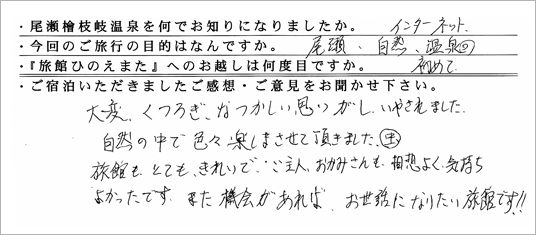 ・尾瀬檜枝岐温泉を何でお知りになりましたか。 インターネット
・今回のご旅行の目的はなんですか。 尾瀬、自然、温泉
・『旅館ひのえまた』へのお越しは何度目ですか。 初めて
・ご宿泊いただきましたご感想・ご意見をお聞かせ下さい。
大変、くつろぎ、なつかしい思いがし、いやされました。
自然の中で色々楽しまさせて頂きました。
旅館も、とても、きれいで、ご主人、おかみさんも相想よく、気持ち
よかったです。また機会があれば、お世話になりたい旅館です!!